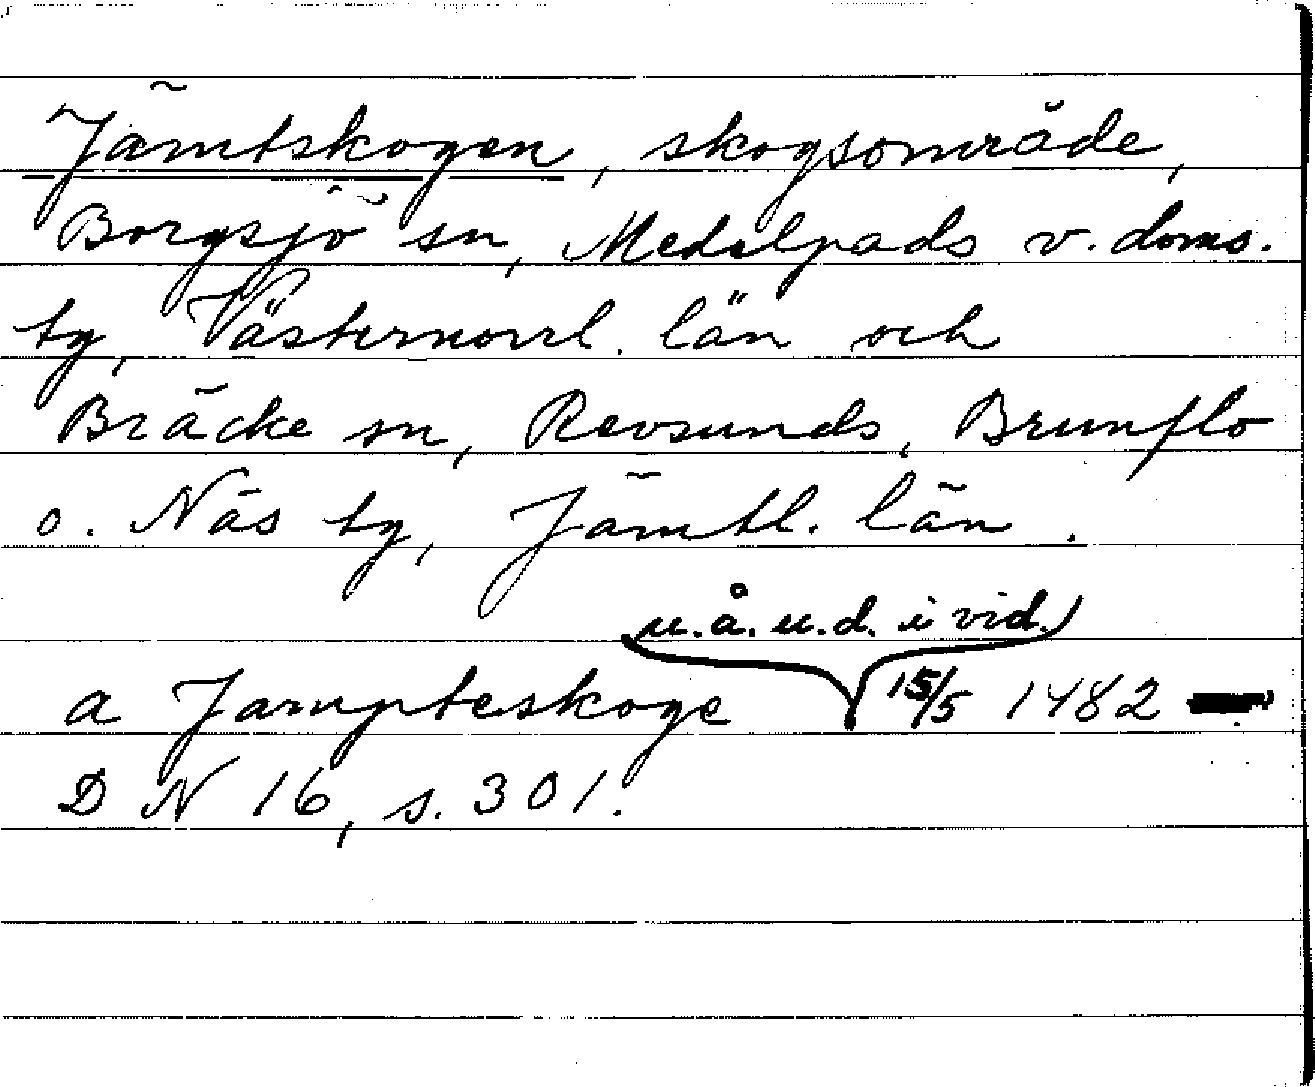 Jämtskogen, skogsområde,
Borgsjö sn, Medelpads v. doms.
tg, Västernorrl. län och
Bräcke sn, Revsunds, Brunflo
o. Näs tg, Jämtl. län.
u.å.u.d. i vid.
a Jampteskoge 15/5 1482
DN 16, s. 301.